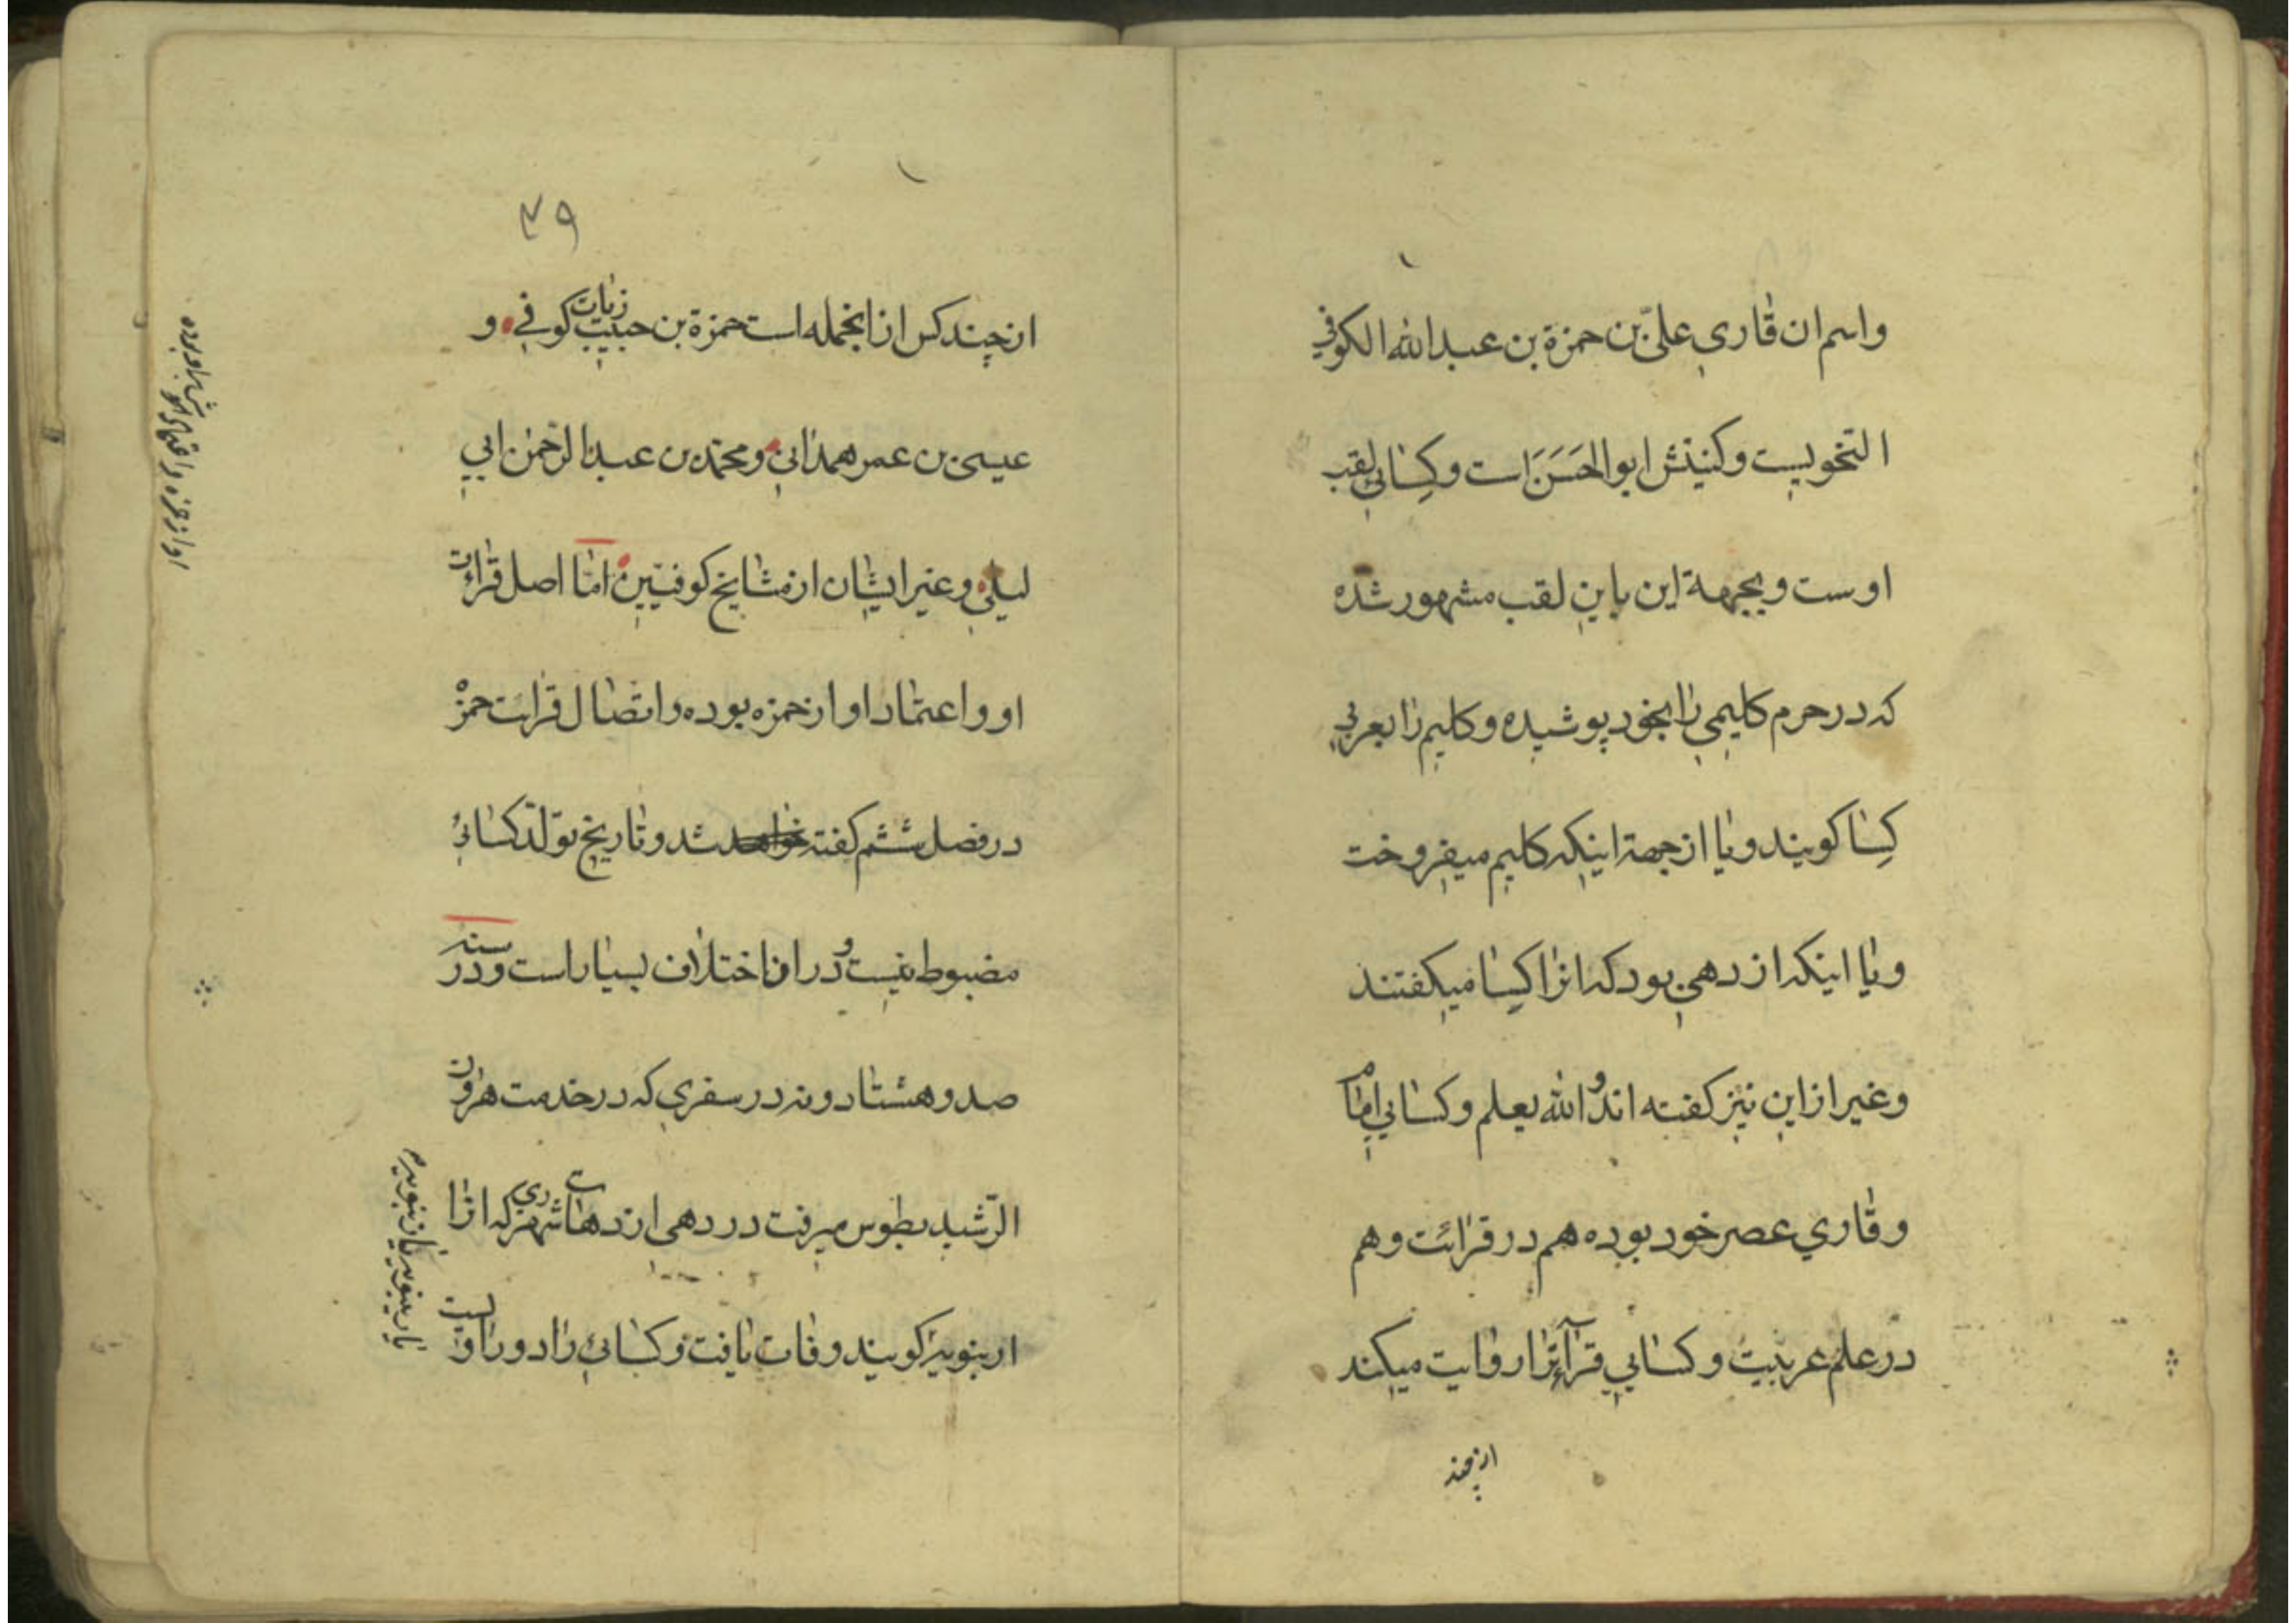 واسم ان قاري علي بن حمزة بن عبد الله الكوفي
النحويست وكنيتش ابوالحَسَنَ است وكِسائي لقب
اوست وبجهة اين باين لقب مشهور شده
كه در حرم كليمي را بخود پوشيده وكليم را بعربي
كِسا كويند ويا از جهة اينكه كليم ميفروخت
ويا اينكه از دهي بود كه انرا كِسا ميكفتند
وغير از اين نيز كفته اند والله يعلم وكسائي امام
وقاري عصر خود بوده هم در قرائت وهم
در علم عربيت وكسائي قرآءترا روايت ميكند
از چند
٣٩
از چند كس از انجمله است حمزة بن حبيب زيات كوفي و
عيسى بن عمر همداني ومحمد بن عبد الرحمن ابي
ليلي وغير ايشان از مشايخ كوفيين امّا اصل قراءت
او واعتماد او از حمزه بوده واتصال قرائت حمزه
در فصل ششم كفته خواهد شد وتاريخ تولّد كسائي
مضبوط نيست ودر ان اختلاف بسيار است ودر سنه
صد وهشتاد ونه در سفري كه در خدمت هرون
الرّشيد بطوس ميرفت در دهي از دهاى شهر ري كه انرا
ارنبويه كويند وفات يافت وكسائي را دو راويست